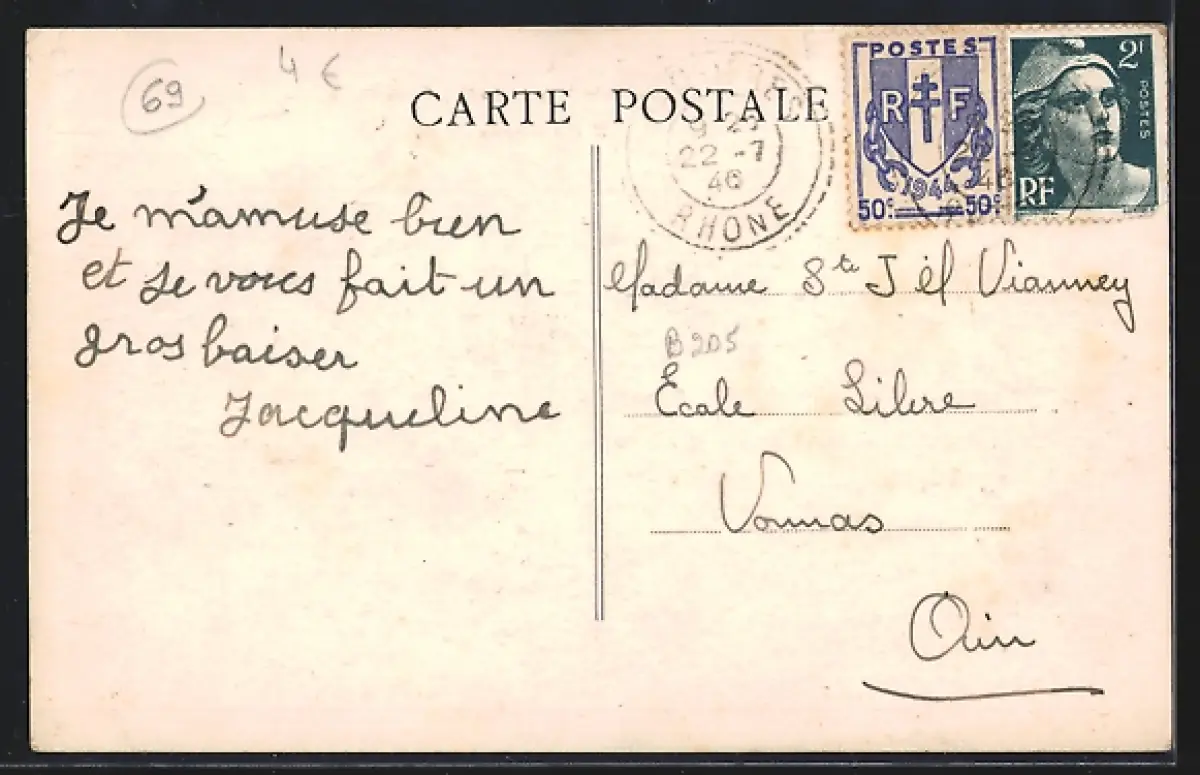 69
4 €
CARTE POSTALE
22 -7
46
RHONE
POSTES
R F
1944
50c 50c
2F
POSTES
RF
Je m'amuse bien
et je vous fait un
gros baiser
Jacqueline
Madame Ste J el Vianney
B205
École Libre
Vonnas
Ain